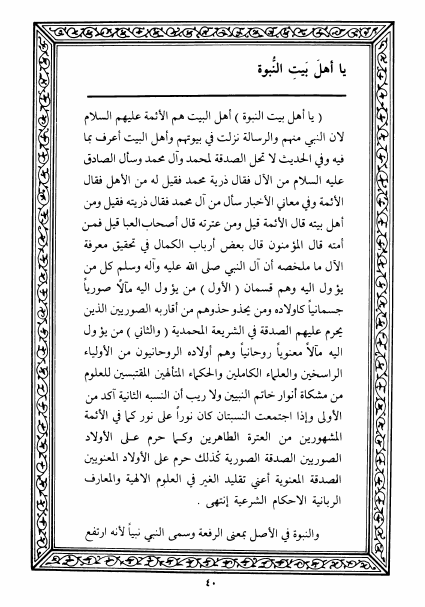 يا أهلَ بَيتِ النُّبوة
( يا أهل بيت النبوة ) أهل البيت هم الأئمة عليهم السلام
لان النبي منهم والرسالة نزلت في بيوتهم وأهل البيت أعرف بما
فيه وفي الحديث لا تحل الصدقة لمحمد وآل محمد وسأل الصادق
عليه السلام من الآل فقال ذرية محمد فقيل له من الأهل فقال
الأئمة وفي معاني الأخبار سأل من آل محمد فقال ذريته فقيل ومن
أهل بيته قال الأئمة قيل ومن عترته قال أصحاب العبا قيل فمن
أمته قال المؤمنون قال بعض أرباب الكمال في تحقيق معرفة
الآل ما ملخصه أن آل النبي صلى الله عليه وآله وسلم كل من
يؤول اليه وهم قسمان ( الأول ) من يؤول اليه مآلاً صورياً
جسمانياً كاولاده ومن يحذو حذوهم من أقاربه الصوريين الذين
يحرم عليهم الصدقة في الشريعة المحمدية ( والثاني ) من يؤول
اليه مآلاً معنوياً روحانياً وهم أولاده الروحانيون من الأولياء
الراسخين والعلماء الكاملين والحكماء المتألهين المقتبسين للعلوم
من مشكاة أنوار خاتم النبيين ولا ريب أن النسبه الثانية آكد من
الأولى وإذا اجتمعت النسبتان كان نوراً على نور كما في الأئمة
المشهورين من العترة الطاهرين وكما حرم على الأولاد
الصوريين الصدقة الصورية كذلك حرم على الأولاد المعنويين
الصدقة المعنوية أعني تقليد الغير في العلوم الالهية والمعارف
الربانية الاحكام الشرعية إنتهى .
والنبوة في الأصل بمعنى الرفعة وسمى النبي نبياً لأنه ارتفع
٤٠